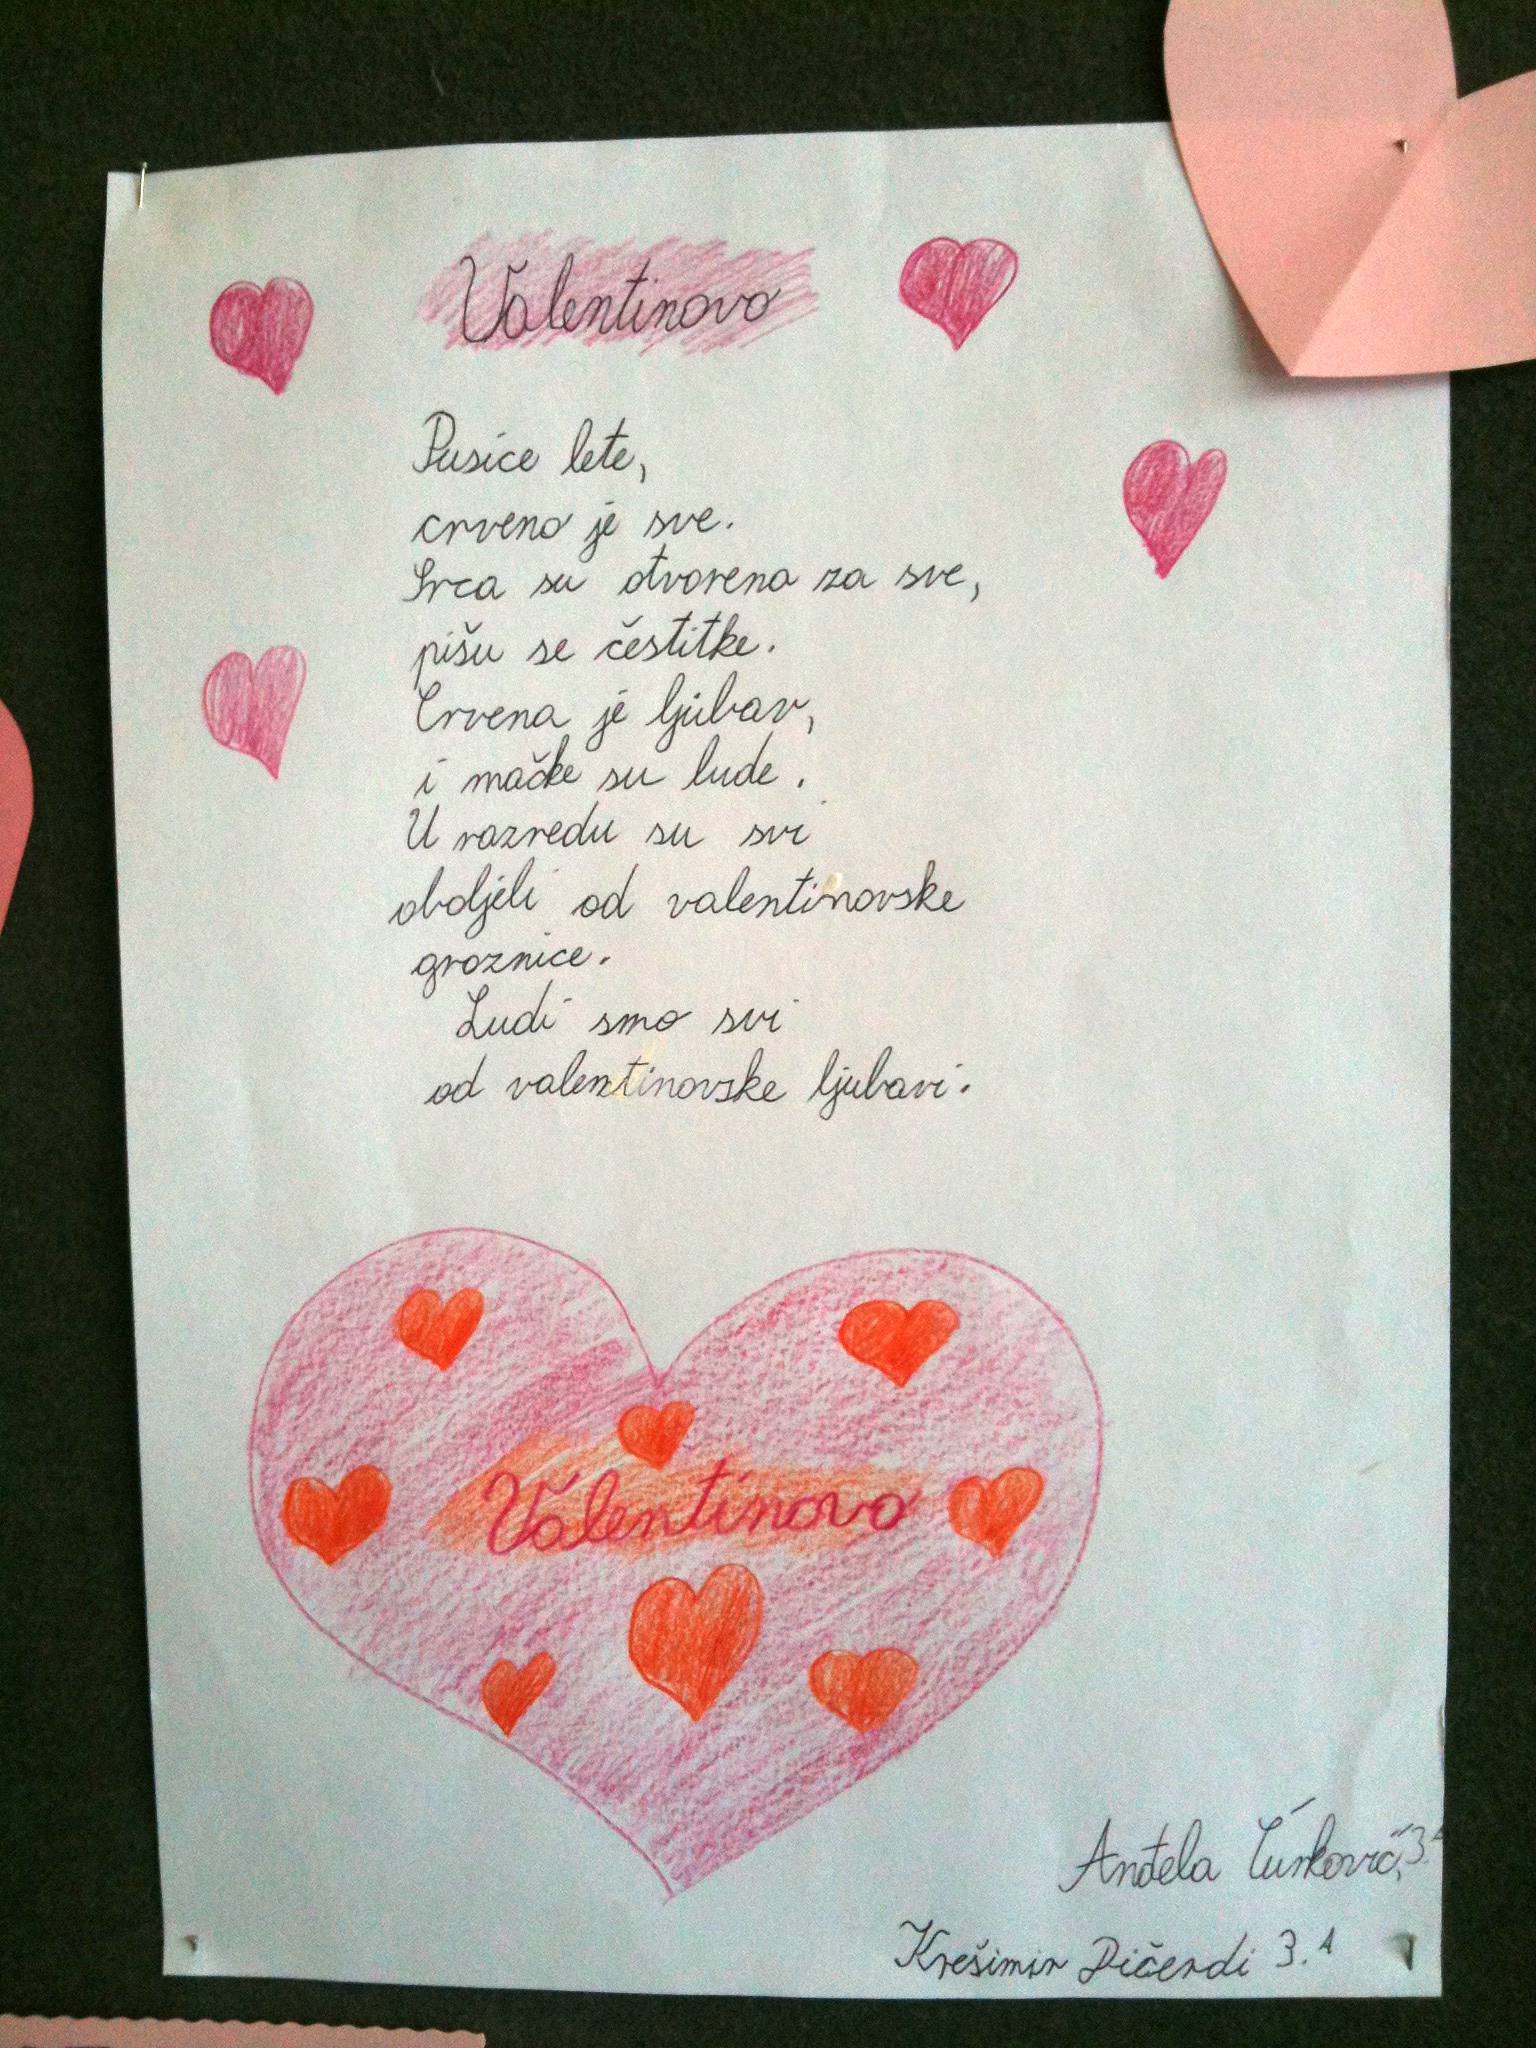 Valentinovo
Pusice lete,
crveno je sve.
Srca su otvorena za sve,
pišu se čestitke.
Crvena je ljubav,
i mačke su lude.
U razredu su svi
oboljeli od valentinovske
groznice.
Ludi smo svi
od valentinovske ljubavi.
Valentinovo
Anđela Ćurković, 3.A
Krešimir Dičerdi 3.A